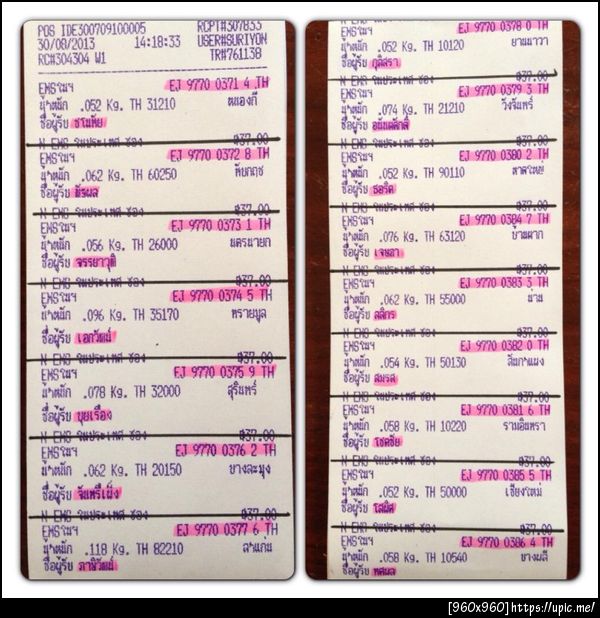 POS IDE300709100005 RCPT#307833
30/08/2013 14:18:33 USER#SURIYON
RC#304304 W1 TR#761138
EMSในฯ EJ 9770 0371 4 TH
น้ำหนัก .052 Kg. TH 31210 หนองกี่
ชื่อผู้รับ ชานชัย
N EMS ในประเทศ ซอง ฿37.00
EMSในฯ EJ 9770 0372 8 TH
น้ำหนัก .062 Kg. TH 60250 พยุหะ
ชื่อผู้รับ
N EMS ในประเทศ ซอง ฿37.00
EMSในฯ EJ 9770 0373 1 TH
น้ำหนัก .056 Kg. TH 26000 นครนายก
ชื่อผู้รับ จรรยาวุติ
N EMS ในประเทศ ซอง ฿37.00
EMSในฯ EJ 9770 0374 5 TH
น้ำหนัก .096 Kg. TH 35170 ทรายมูล
ชื่อผู้รับ เอกวัฒน์
N EMS ในประเทศ ซอง ฿37.00
EMSในฯ EJ 9770 0375 9 TH
น้ำหนัก .078 Kg. TH 32000 สุรินทร์
ชื่อผู้รับ บุยเรือง
N EMS ในประเทศ ซอง ฿37.00
EMSในฯ EJ 9770 0376 2 TH
น้ำหนัก .062 Kg. TH 20150 บางละมุง
ชื่อผู้รับ จันทร์เพ็ง
N EMS ในประเทศ ซอง ฿37.00
EMSในฯ EJ 9770 0377 6 TH
น้ำหนัก .118 Kg. TH 82210
ชื่อผู้รับ ภาณุวัฒน์
EJ 9770 0378 0 TH
น้ำหนัก .052 Kg. TH 10120 ยานนาวา
ชื่อผู้รับ กุลิสรา
N EMS ในประเทศ ซอง ฿37.00
EMSในฯ EJ 9770 0379 3 TH
น้ำหนัก .074 Kg. TH 21210 วังจันทร์
ชื่อผู้รับ อนันตศักดิ์
N EMS ในประเทศ ซอง ฿37.00
EMSในฯ EJ 9770 0380 2 TH
น้ำหนัก .052 Kg. TH 90110 หาดใหญ่
ชื่อผู้รับ ธอริค
N EMS ในประเทศ ซอง ฿37.00
EMSในฯ EJ 9770 0384 7 TH
น้ำหนัก .076 Kg. TH 63120 บ้านตาก
ชื่อผู้รับ เจษฎา
N EMS ในประเทศ ซอง ฿37.00
EMSในฯ EJ 9770 0383 3 TH
น้ำหนัก .062 Kg. TH 55000 น่าน
ชื่อผู้รับ ลลิกร
N EMS ในประเทศ ซอง ฿37.00
EMSในฯ EJ 9770 0382 0 TH
น้ำหนัก .054 Kg. TH 50130 สันกำแพง
ชื่อผู้รับ สมรส
N EMS ในประเทศ ซอง ฿37.00
EMSในฯ EJ 9770 0381 6 TH
น้ำหนัก .058 Kg. TH 10220 รามอินทรา
ชื่อผู้รับ โชคชัย
N EMS ในประเทศ ซอง ฿37.00
EMSในฯ EJ 9770 0385 5 TH
น้ำหนัก .052 Kg. TH 50000 เชียงใหม่
ชื่อผู้รับ โสภิต
N EMS ในประเทศ ซอง ฿37.00
EMSในฯ EJ 9770 0386 4 TH
น้ำหนัก .058 Kg. TH 10540 บางพลี
ชื่อผู้รับ ทศพล
[960x960] https://upic.me/